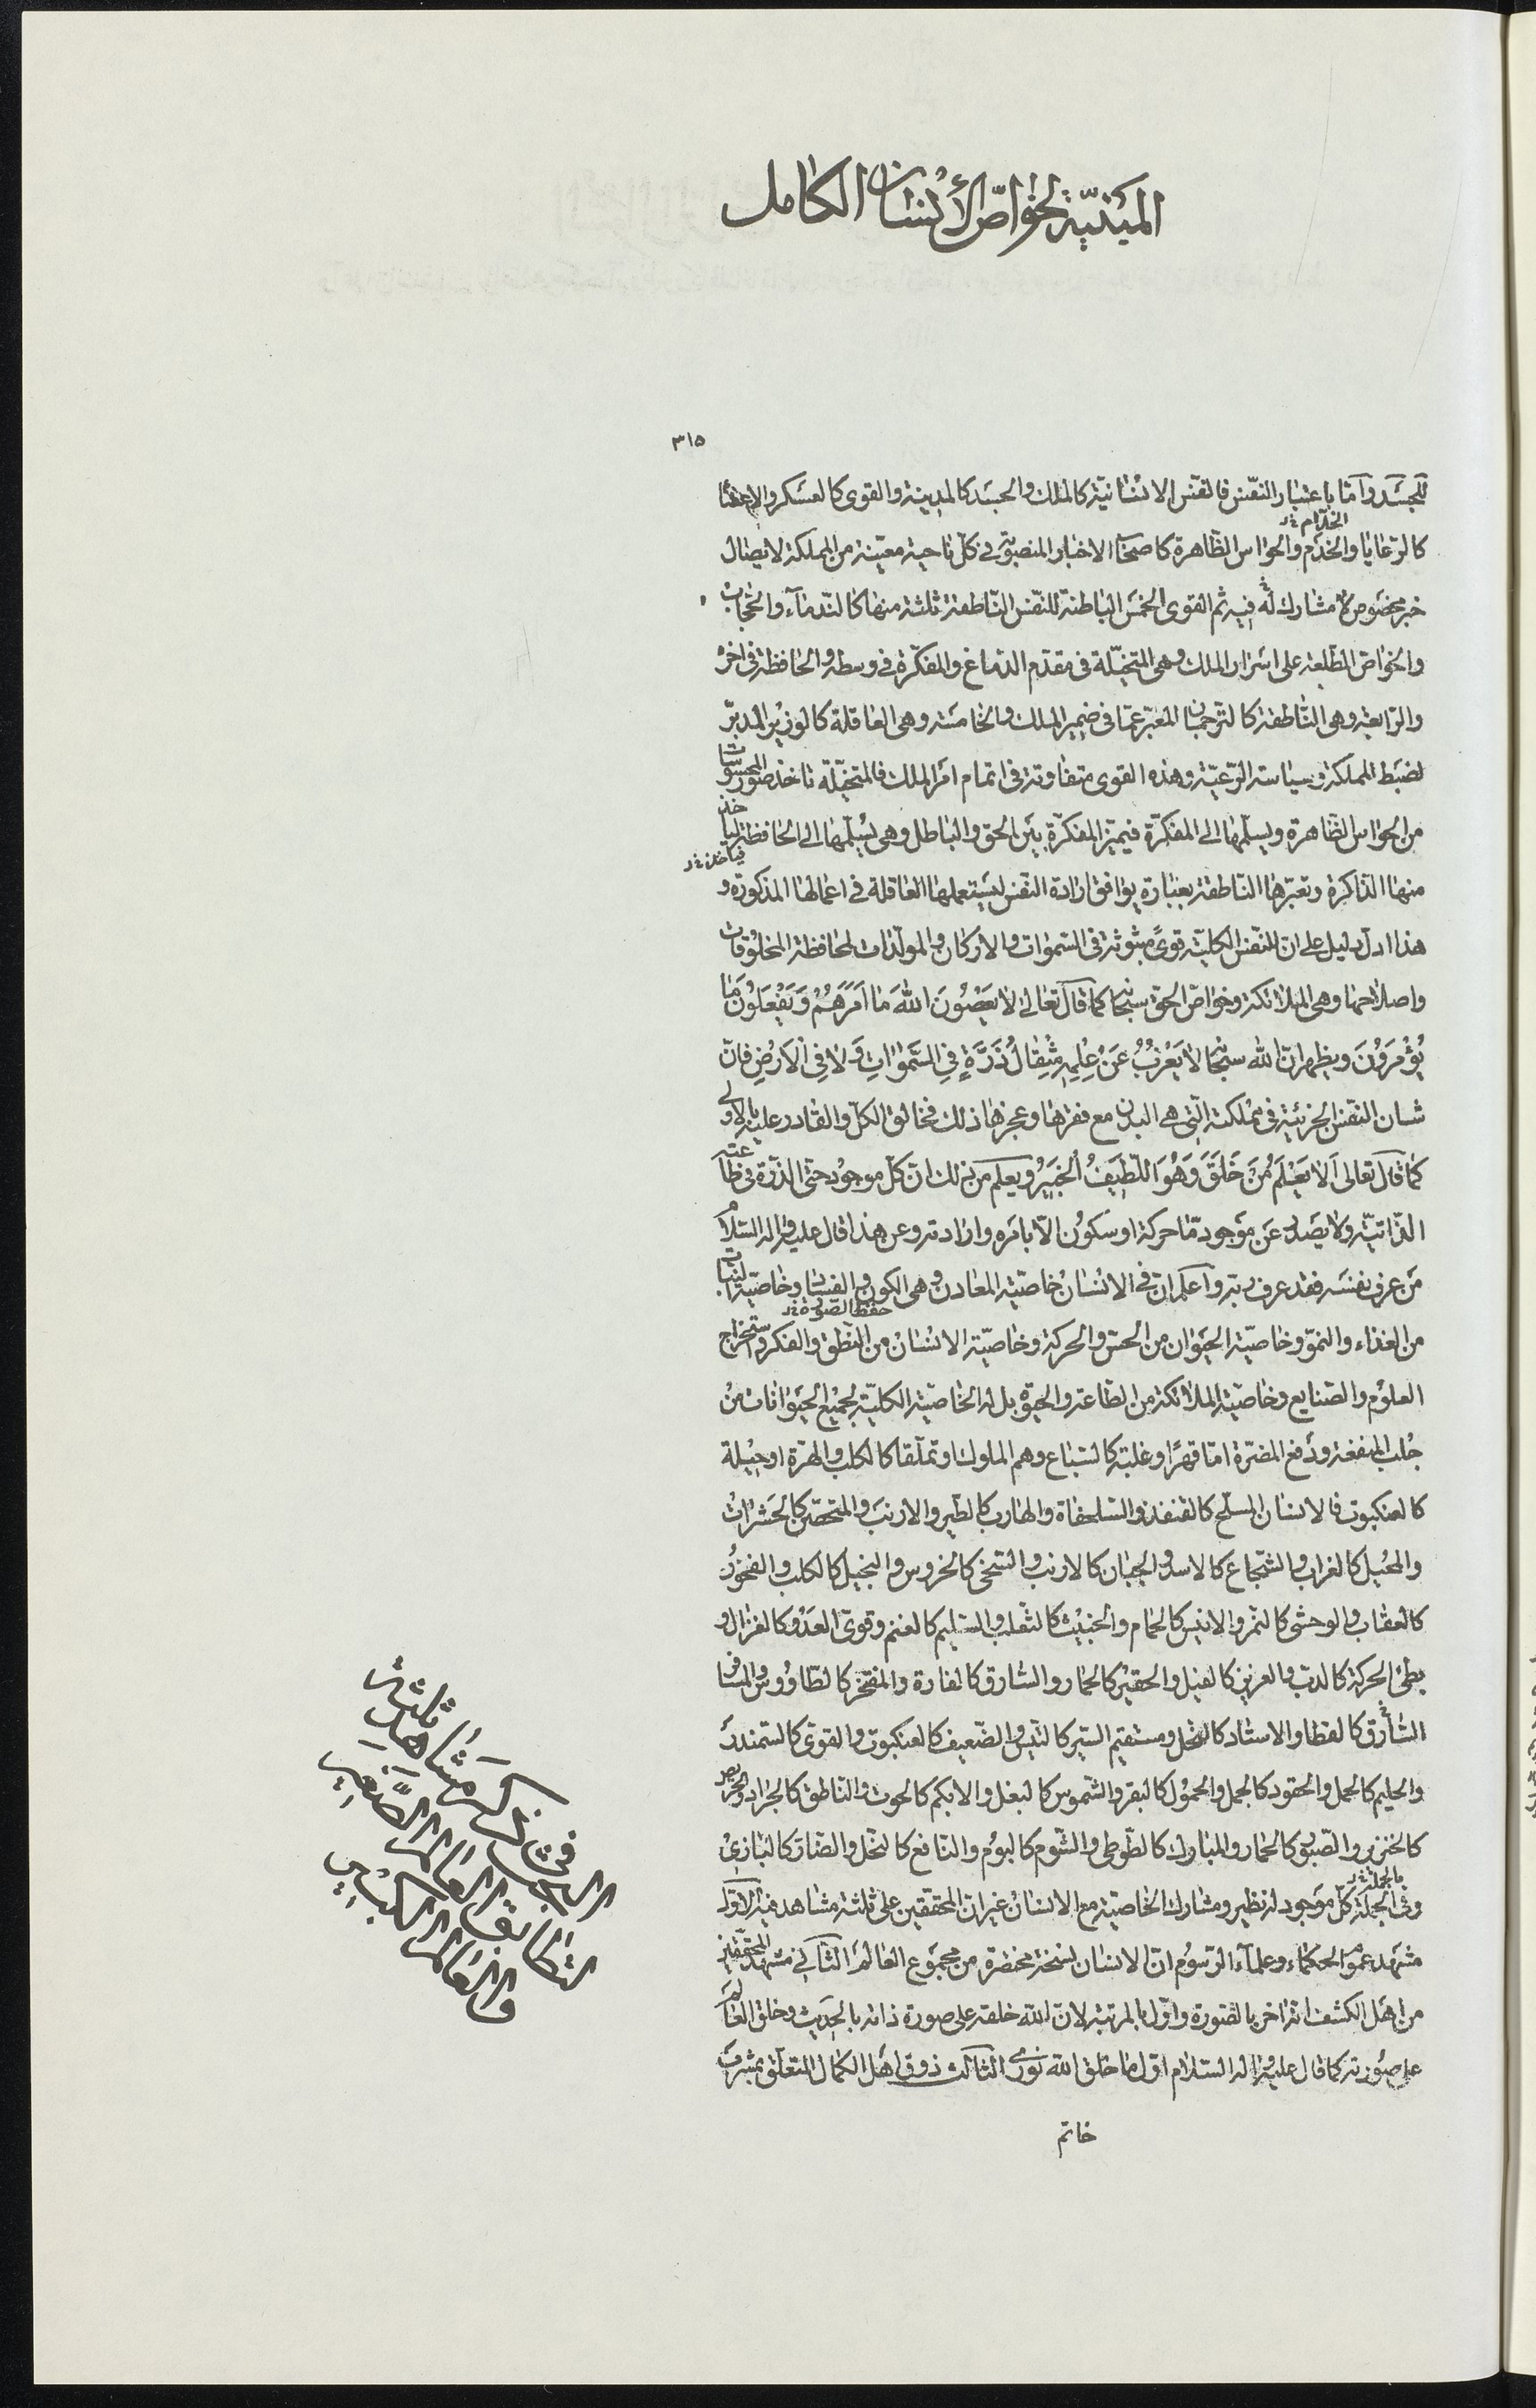 المبنيّة لخواصّ الأنسان الكامل
٣١٥
للجسد وامّا باعتبار النفس فالنفس الانسانيّة كالملك والجسد كالمدينة والقوى كالعسكر والاعضا
الخدّام خ‌ر
كالرّعايا والخدم والحواس الظاهرة كاصحاب الاخبار المنصوبة فى كلّ ناحية معيّنة من المملكة لايصال
خبر مخصوص لا مشارك له فيه ثم القوى الخمس الباطنة للنفس الناطقة ثلثة منها كالندمآء والحجاب
والخواص المطّلعة على اسرار الملك وهى المتخيّلة فى مقدّم الدّماغ والمفكّرة فى وسطه والحافظة فى اخره
والرّابعة وهى النّاطقة كالترجمان المعبّر عمّا فى ضمير الملك والخامسة وهى العاقلة كالوزير المدبّر
لضبط المملكة وسياسة الرّعيّة وهذه القوى متفاوتة فى اتمام امر الملك فالمتخيّلة تاخذ صور المحسوسات
من الحواس الظاهرة ويسلّمها الى المفكّرة فيميّز المفكّرة بين الحق والباطل وهى يسلّمها الى الحافظة لياخذ
فياخذ خ‌ر
منها الذاكرة وتعبّرها الناطقة بعبارة يوافق ارادة النفس ليستعملها العاقلة فى اعمالها المذكورة و
هذا ادلّ دليل على ان للنفس الكليّة قوىً مبثوثة فى السّموات والاركان والمولّدات لمحافظة المخلوقات
واصلاحها وهى الملائكة وخواصّ الحق سبحانه كما قال تعالى لا يَعْصُونَ اللّهَ ما اَمَرَهُمْ وَيَفْعَلُونَ ما
يُؤْمَرُونَ ويظهر انّ اللّه سبحانه لا يَعْزُبُ عَنْ عِلْمِهِ مِثْقالُ ذَرَّةٍ فِي السَّمواتِ وَلا فِى الاَرْضِ فانّ
شان النفس الجزئيّة فى مملكته التى هى البدن مع فقرها وعجزها ذلك فخالق الكلّ والقادر عليه بالاولى
كما قال تعالى اَلا يَعْلَمُ مَنْ خَلَقَ وَهُوَ اللَّطيفُ الْخَبيرُ ويعلم من ذلك انّ كلّ موجود حتّى الذّرّة فى طاعته
الذّاتيّة ولا يصدر عن موجود مّا حركة او سكون الّا بامره وارادته وعن هذا قال عليه واله السّلام
من عرف نفسه فقد عرف ربّه واعلم انّ فى الانسان خاصيّة المعادن وهى الكون والفساد وخاصيّة النبات
حفظ الصورة خ‌ر
من الغذاء والنموّ وخاصيّة الحيوان من الحسّ والحركة وخاصيّة الانسان من النطق والفكر واستخراج
العلوم والصّنايع وخاصيّة الملائكة من الطّاعة والحيوة بل له الخاصيّة الكليّة لجميع الحيوانات من
جلب المنفعة ودفع المضرّة امّا قهرًا وغلبة كالسّباع وهم الملوك او تملّقا كالكلب والهرّة او حيلة
كالعنكبوت فالانسان المسلّح كالقنفذ والسّلحفاة والهارب كالطّير والارنب والمتحصّن كالحشرات
والمحيل كالغراب والشّجاع كالاسد والجبان كالارنب والسّخى كالخروس والبخيل كالكلب والفخور
كالعقاب والوحشى كالنّمر والانيس كالحمام والخبيث كالثّعلب والسليم كالغنم وقوىّ العَدْو كالغزال و
بطئ الحركة كالدبّ والعزيز كالفيل والحقير كالحمار والسّارق كالفارة والمفتخر كالطّاووس والمسافر
السّارق كالقطا والاستاد كالنحل ومستقيم السّير كالتّيس والضّعيف كالعنكبوت والقوىّ كالسّمندر
والحليم كالحمل والحقود كالجمل والحمول كالبقر والشّموس كالبغل والابكم كالحوت والنّاطق كالجراد والحريص
كالخنزير والصّبور كالحمار والمبارك كالطّوطى والشّوم كالبوم والنافع كالنحل والضّارّ كالبازى
بالجملة خ‌ر
وفى الجملة كلّ موجود له نظير ومشارك الخاصيّة مع الانسان غير انّ المحقّقين على ثلثة مشاهد فيه الاوّل
مشهد عموم الحكماء وعلمآء الرّسوم انّ الانسان نسخة مختصرة من مجموع العالم الثانى مشهد المحقّقين
من اهل الكشف انّه اخر بالصّورة واوّل بالمرتبة لانّ اللّه خلقه على صورة ذاته بالحديث وخلق العالم
على صورته كما قال عليه واله السّلام اوّل ما خلق اللّه نورى الثالث ذوق اهل الكمال المتعلّق بمشرف
خاتم
فى ذكر مشاهد ثلثة
التى تطابق العالم الصّغير
والعالم الكبير